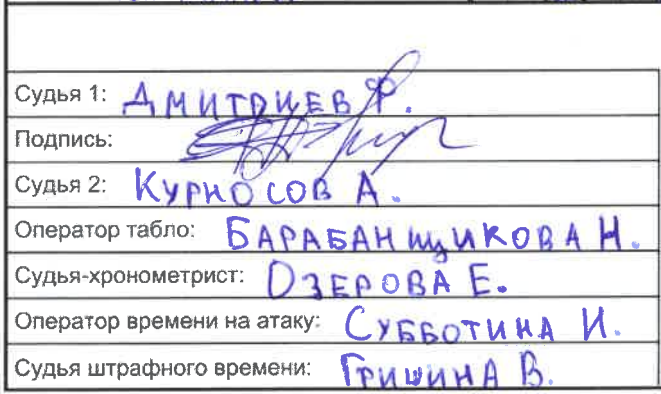 Судья 1: ДМИТРИЕВ Р.
Подпись:
Судья 2: КУРНОСОВ А.
Оператор табло: БАРАБАНЩИКОВА Н.
Судья-хронометрист: ОЗЕРОВА Е.
Оператор времени на атаку: СУББОТИНА И.
Судья штрафного времени: ГРИШИНА В.